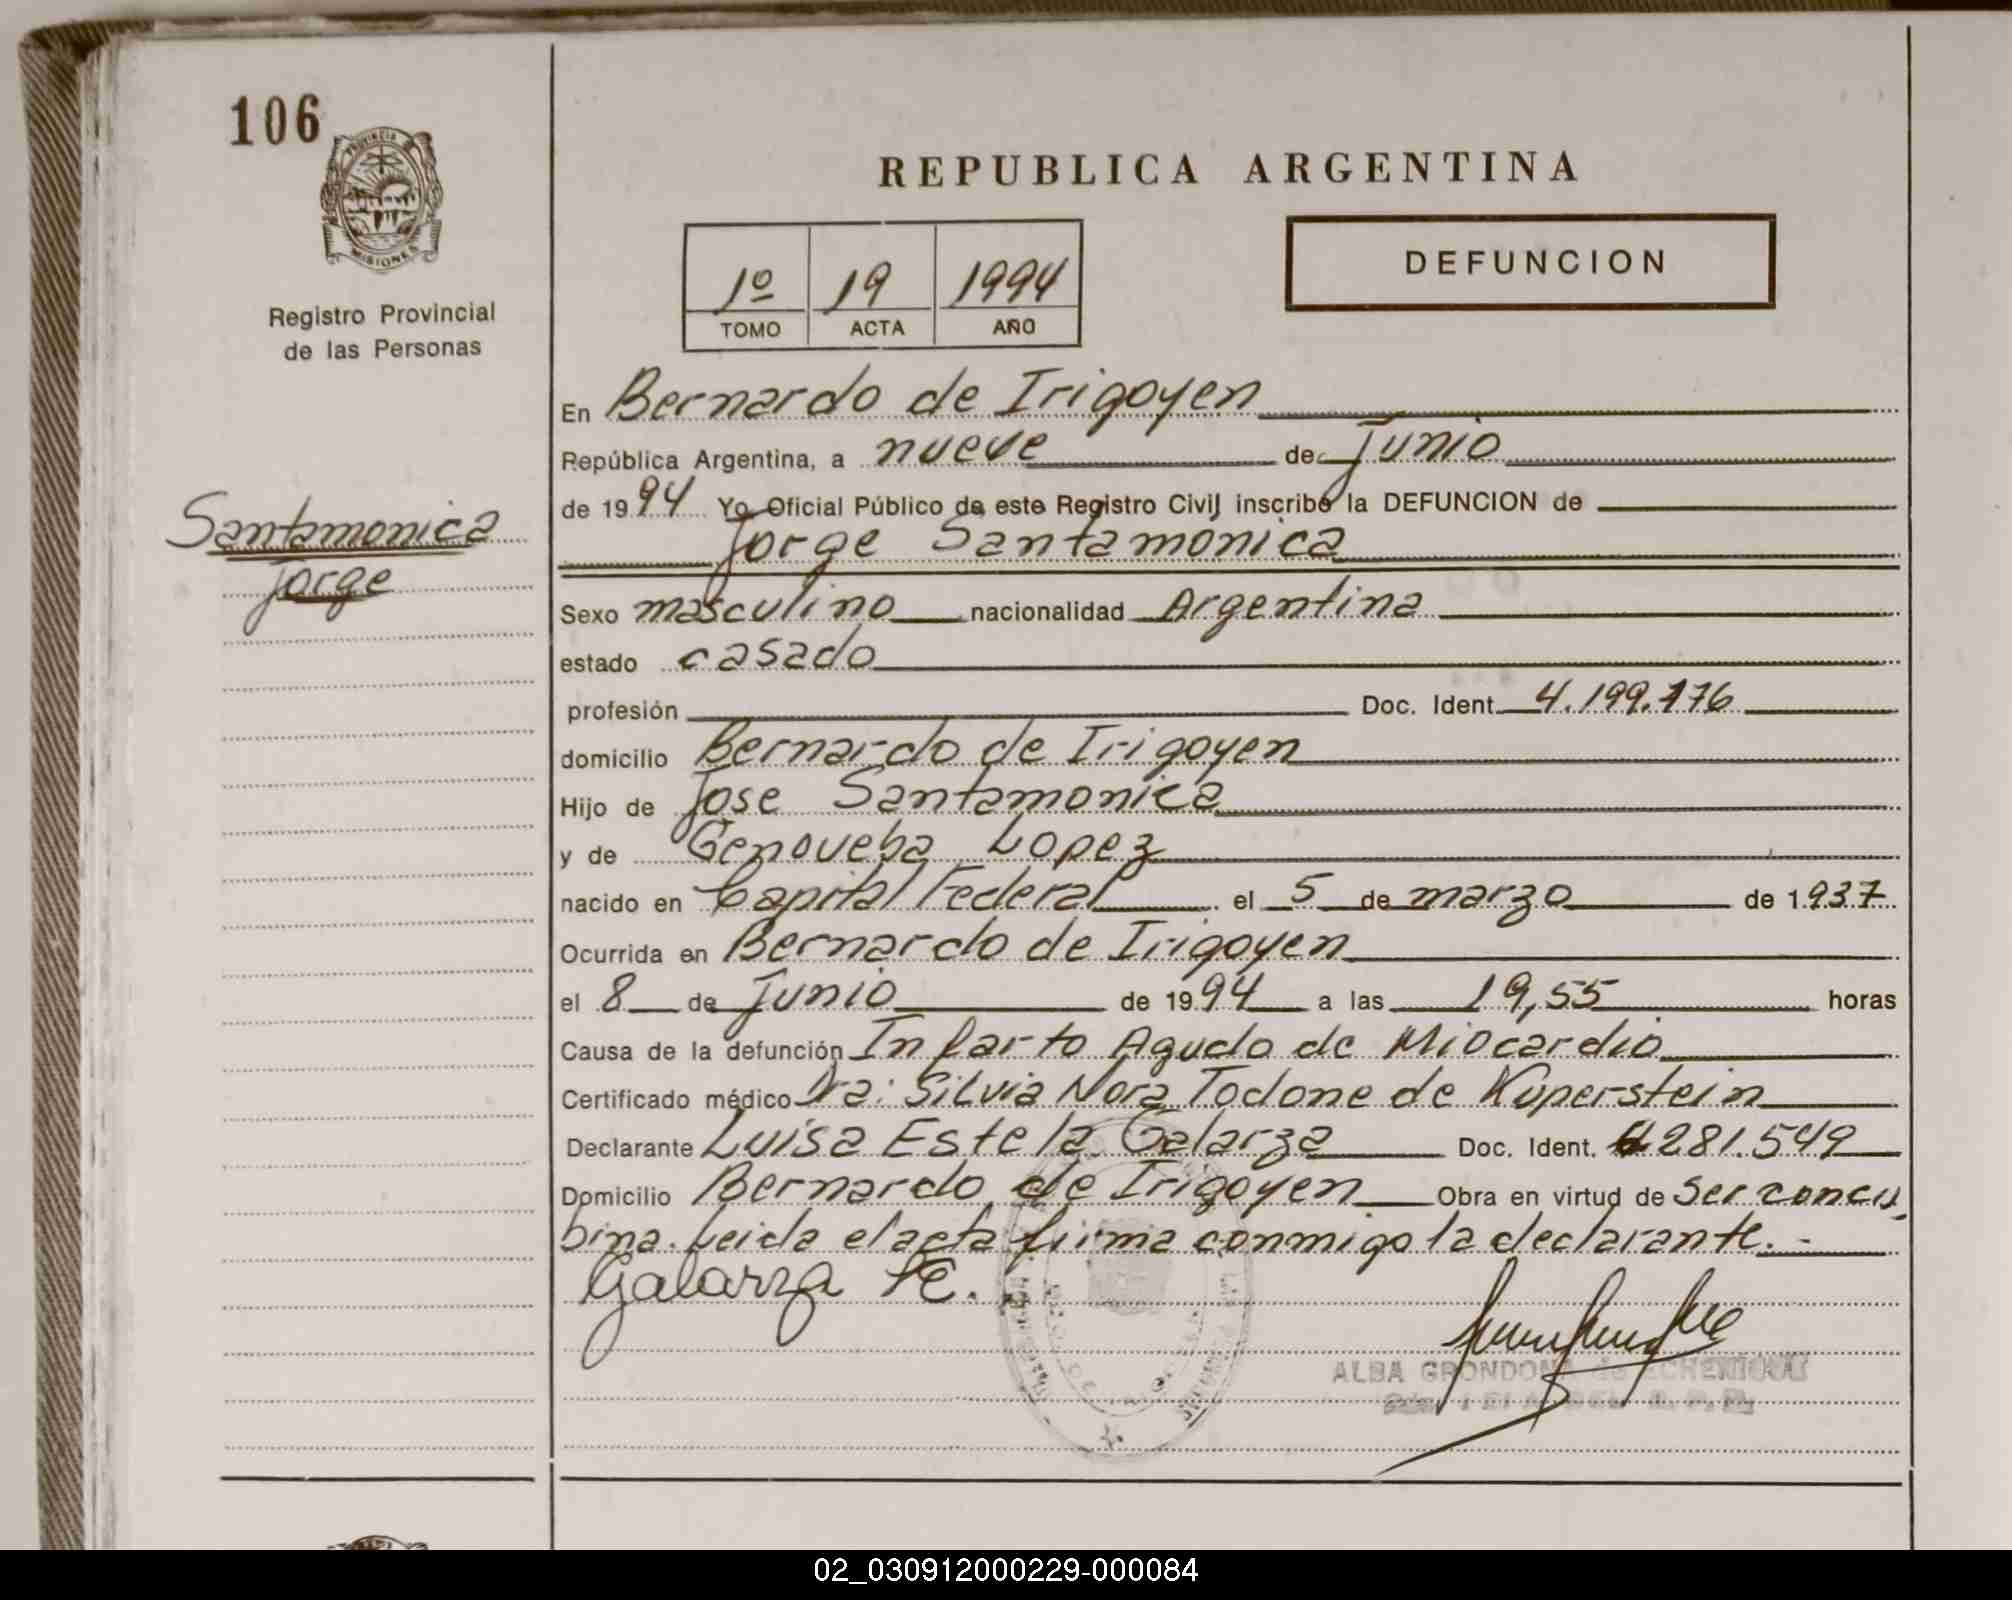 106
PROVINCIA
MISIONES
Registro Provincial
de las Personas
Santamonica
Jorge
REPUBLICA ARGENTINA
1º 19 1994
TOMO ACTA AÑO
DEFUNCION
En Bernardo de Irigoyen
República Argentina, a nueve de Junio
de 1994 Yo Oficial Público de este Registro Civil inscribo la DEFUNCION de
Jorge Santamonica
Sexo masculino nacionalidad Argentina
estado casado
profesión Doc. Ident. 4.199.176
domicilio Bernardo de Irigoyen
Hijo de Jose Santamonica
y de Genoveba Lopez
nacido en Capital Federal el 5 de marzo de 1.937
Ocurrida en Bernardo de Irigoyen
el 8 de Junio de 1994 a las 19,55 horas
Causa de la defunción Infarto Agudo de Miocardio
Certificado médico Dra: Silvia Nora Todone de Kuperstein
Declarante Luisa Estela Galarza Doc. Ident. 4281.549
Domicilio Bernardo de Irigoyen Obra en virtud de ser concu
bina. Leida el acta firma conmigo la declarante.-
Galarza
ALBA GRONDONA de
02_030912000229-000084